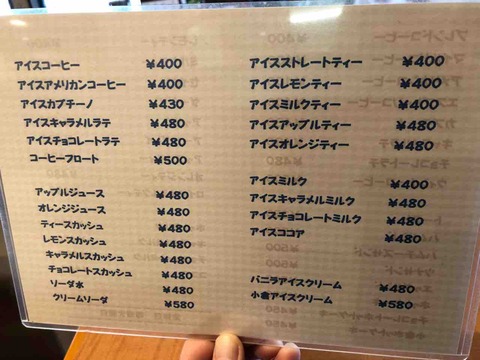 アイスコーヒー ¥400
アイスアメリカンコーヒー ¥400
アイスカプチーノ ¥430
アイスキャラメルラテ ¥480
アイスチョコレートラテ ¥480
コーヒーフロート ¥500
アップルジュース ¥480
オレンジジュース ¥480
ティースカッシュ ¥480
レモンスカッシュ ¥480
キャラメルスカッシュ ¥480
チョコレートスカッシュ ¥480
ソーダ水 ¥480
クリームソーダ ¥580
アイスストレートティー ¥400
アイスレモンティー ¥400
アイスミルクティー ¥400
アイスアップルティー ¥480
アイスオレンジティー ¥480
アイスミルク ¥400
アイスキャラメルミルク ¥480
アイスチョコレートミルク ¥480
アイスココア ¥480
バニラアイスクリーム ¥480
小倉アイスクリーム ¥580